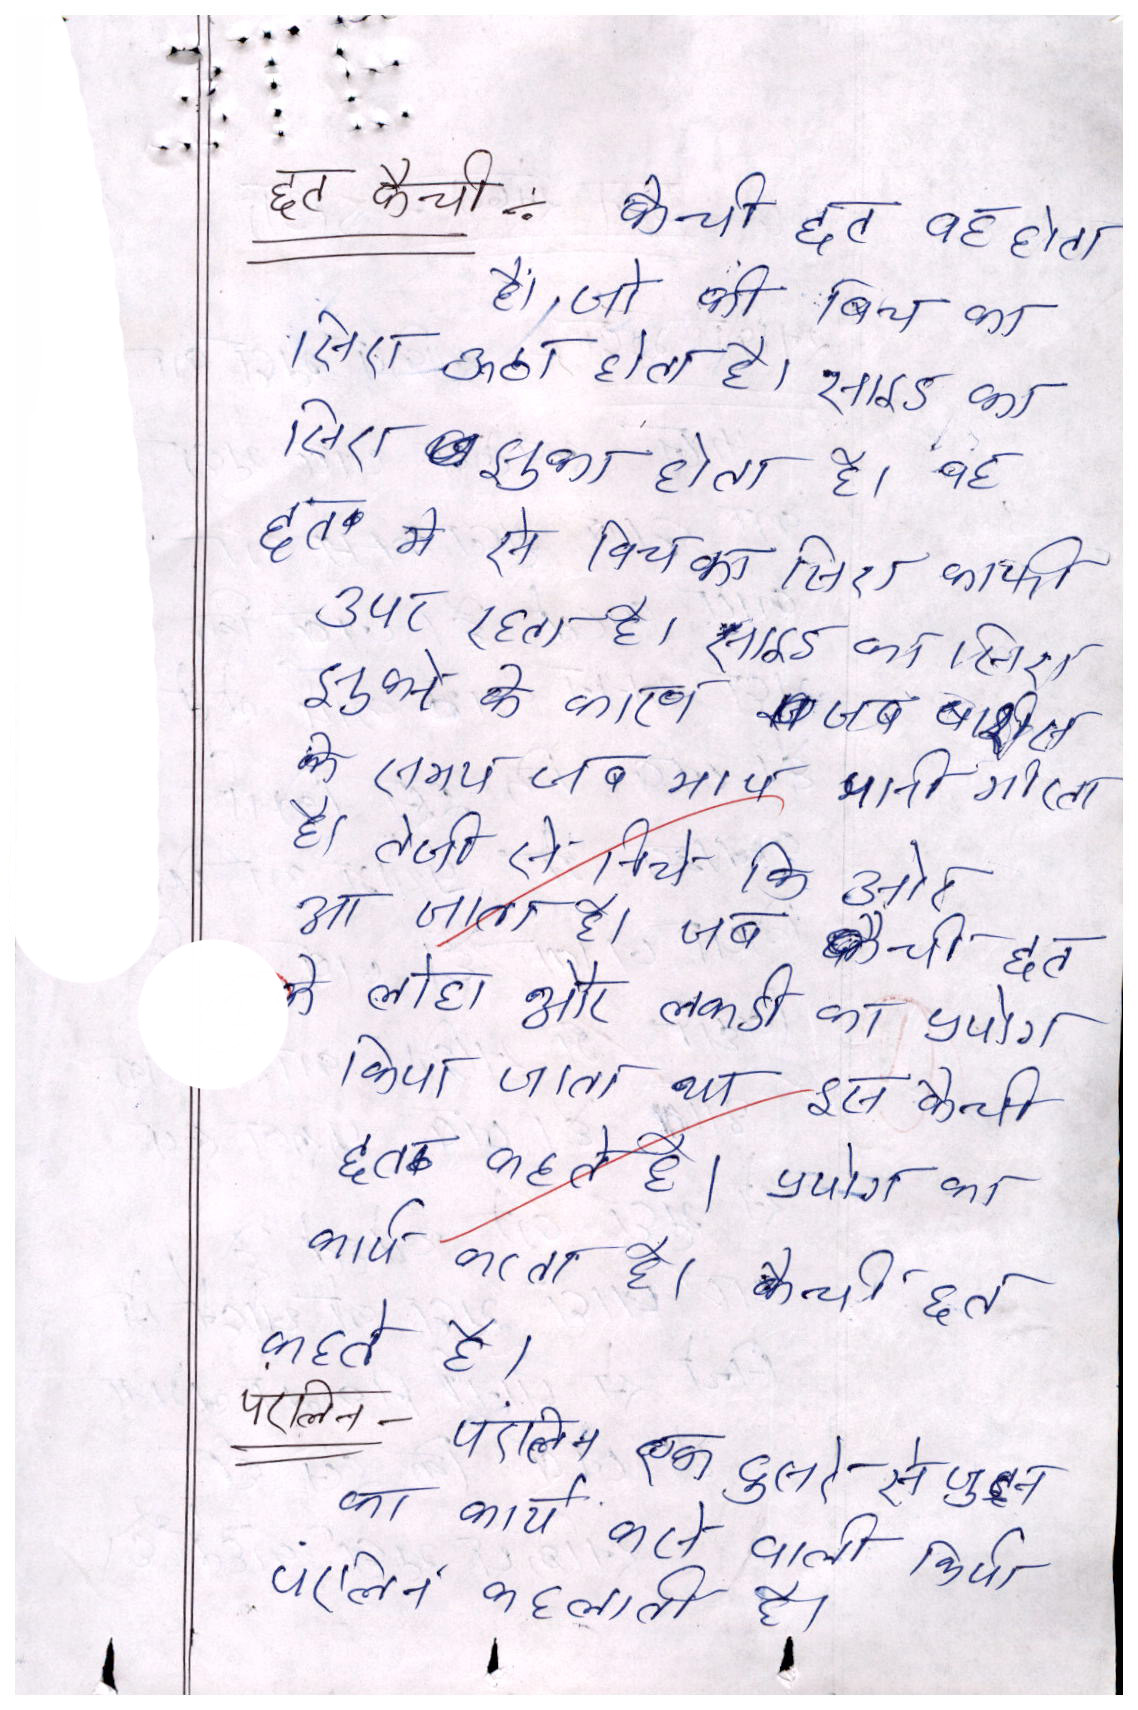 छत कैची ÷ कैन्ची छत वह होता
है।, जो की बिच का
सिरा ऊठा होता है। साइड का
सिरा झुका होता है। वह
छत मे से विच का सिरा काफी
उपर रहता है। साइड का सिरा
झुकने के कारण जब बारीस
के समय जब पानी गीरता
है। तेजी से निचे कि ओर
आ जाता है। जब कैन्ची छत
मे लोहा और लकडी का प्रयोग
किया जाता था इस कैन्ची
छत कहते है। प्रयोग का
कार्य करता है। कैन्ची छत
कहते है।
परलिन - परलिन एक दुसरे से जुडन
का कार्य करने वाली किर्या
परलिन कहलाती है।